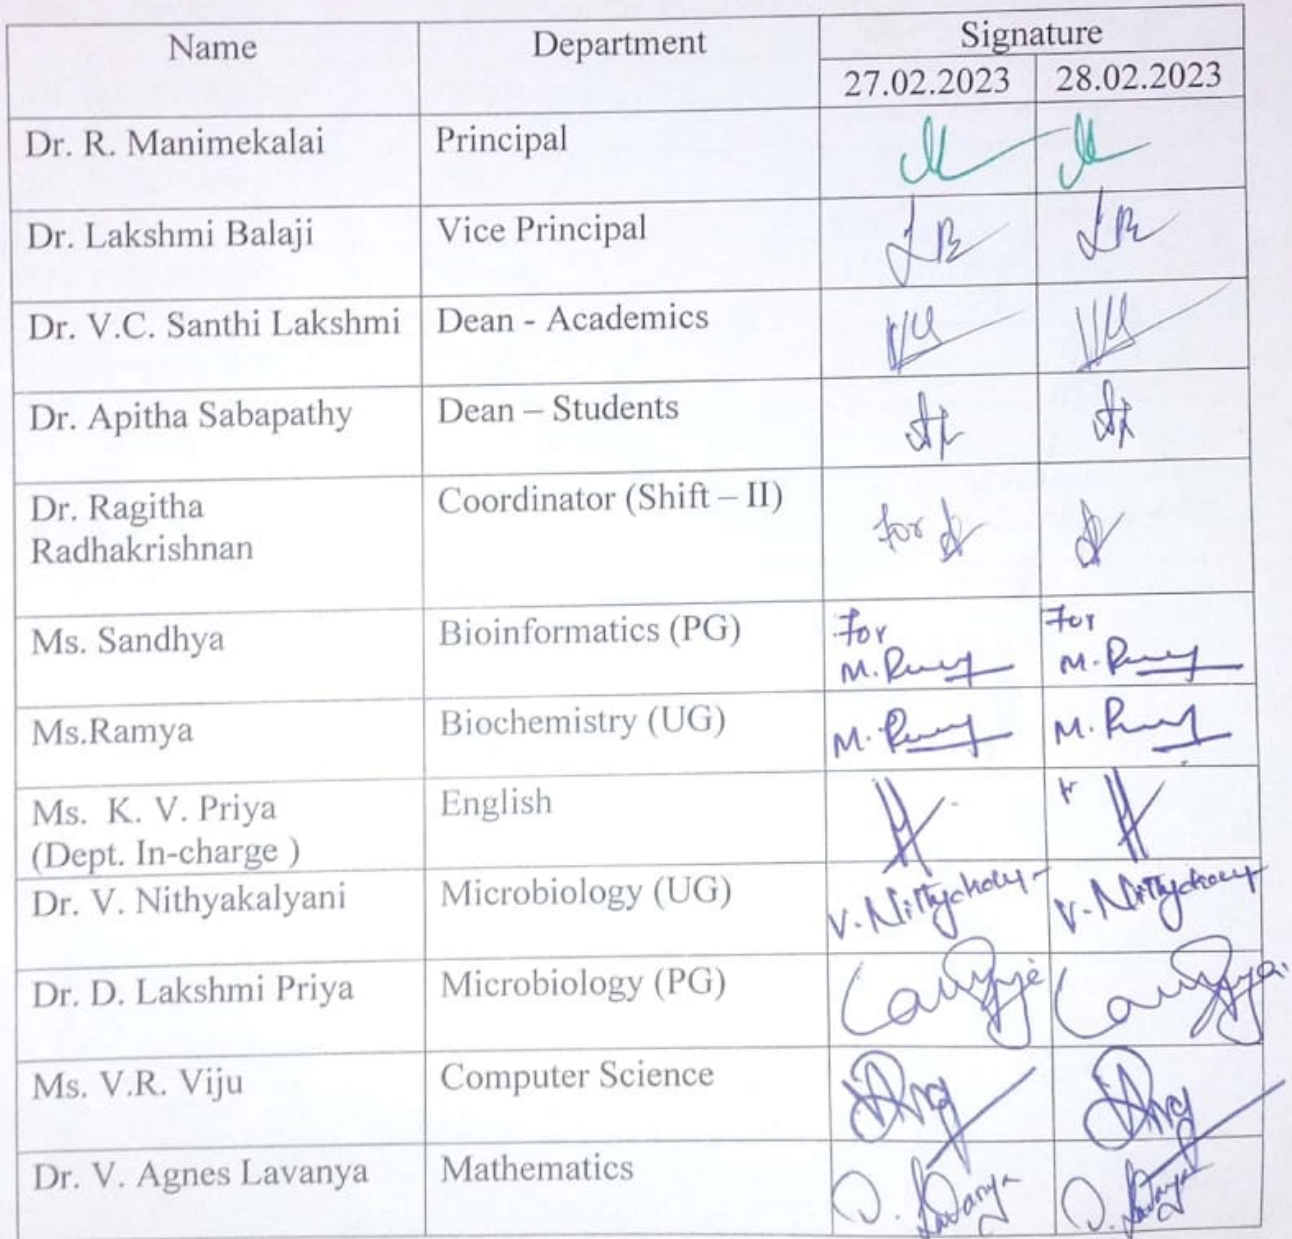 Name Department Signature
27.02.2023 28.02.2023
Dr. R. Manimekalai Principal
Dr. Lakshmi Balaji Vice Principal
Dr. V.C. Santhi Lakshmi Dean - Academics
Dr. Apitha Sabapathy Dean – Students
Dr. Ragitha Coordinator (Shift – II)
Radhakrishnan for
Ms. Sandhya Bioinformatics (PG) For For
M. M.
Ms.Ramya Biochemistry (UG) M. M.
Ms. K. V. Priya English
(Dept. In-charge )
Dr. V. Nithyakalyani Microbiology (UG) V. V.
Dr. D. Lakshmi Priya Microbiology (PG)
Ms. V.R. Viju Computer Science
Dr. V. Agnes Lavanya Mathematics